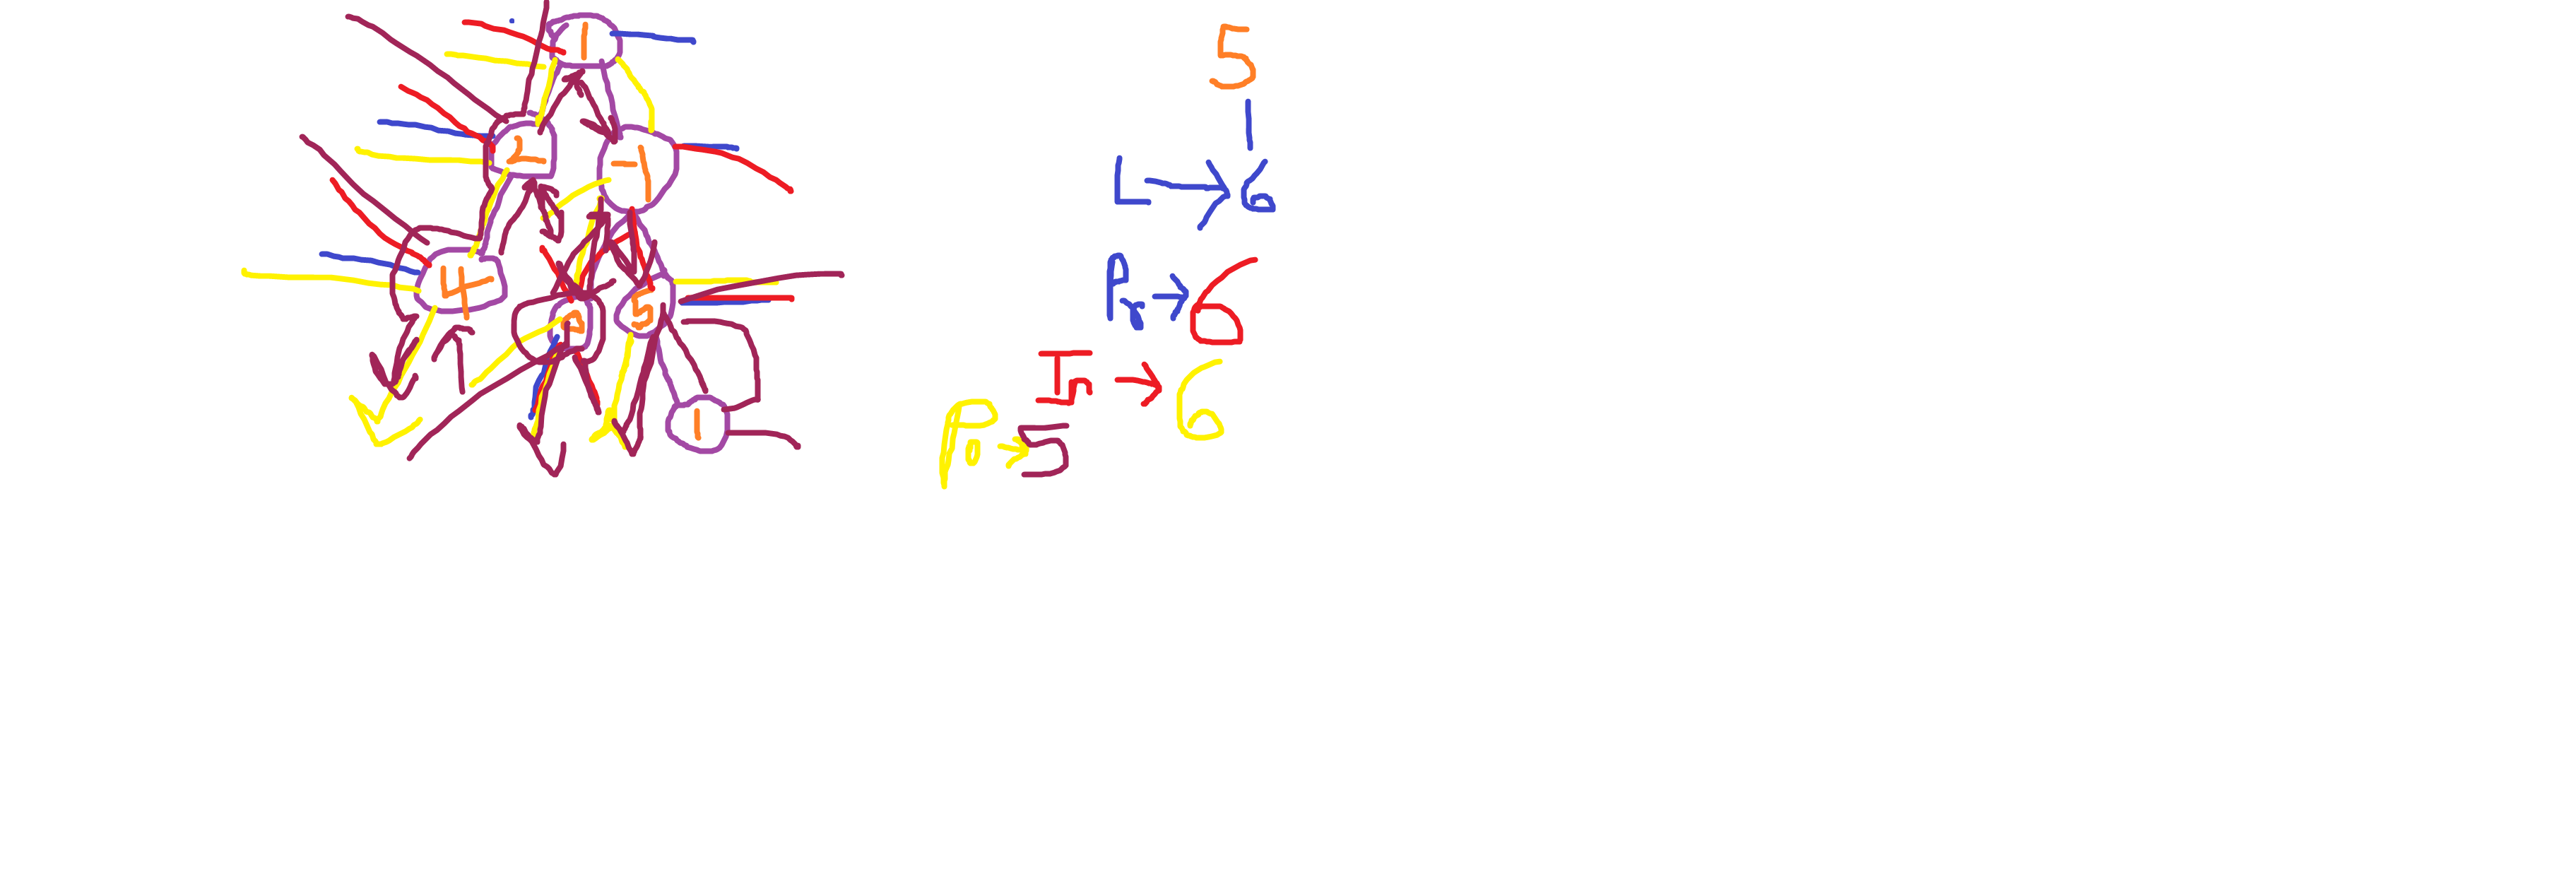 1
2
-1
4
2
5
1
5
L → 6
Pr → 6
In → 6
Po → 5